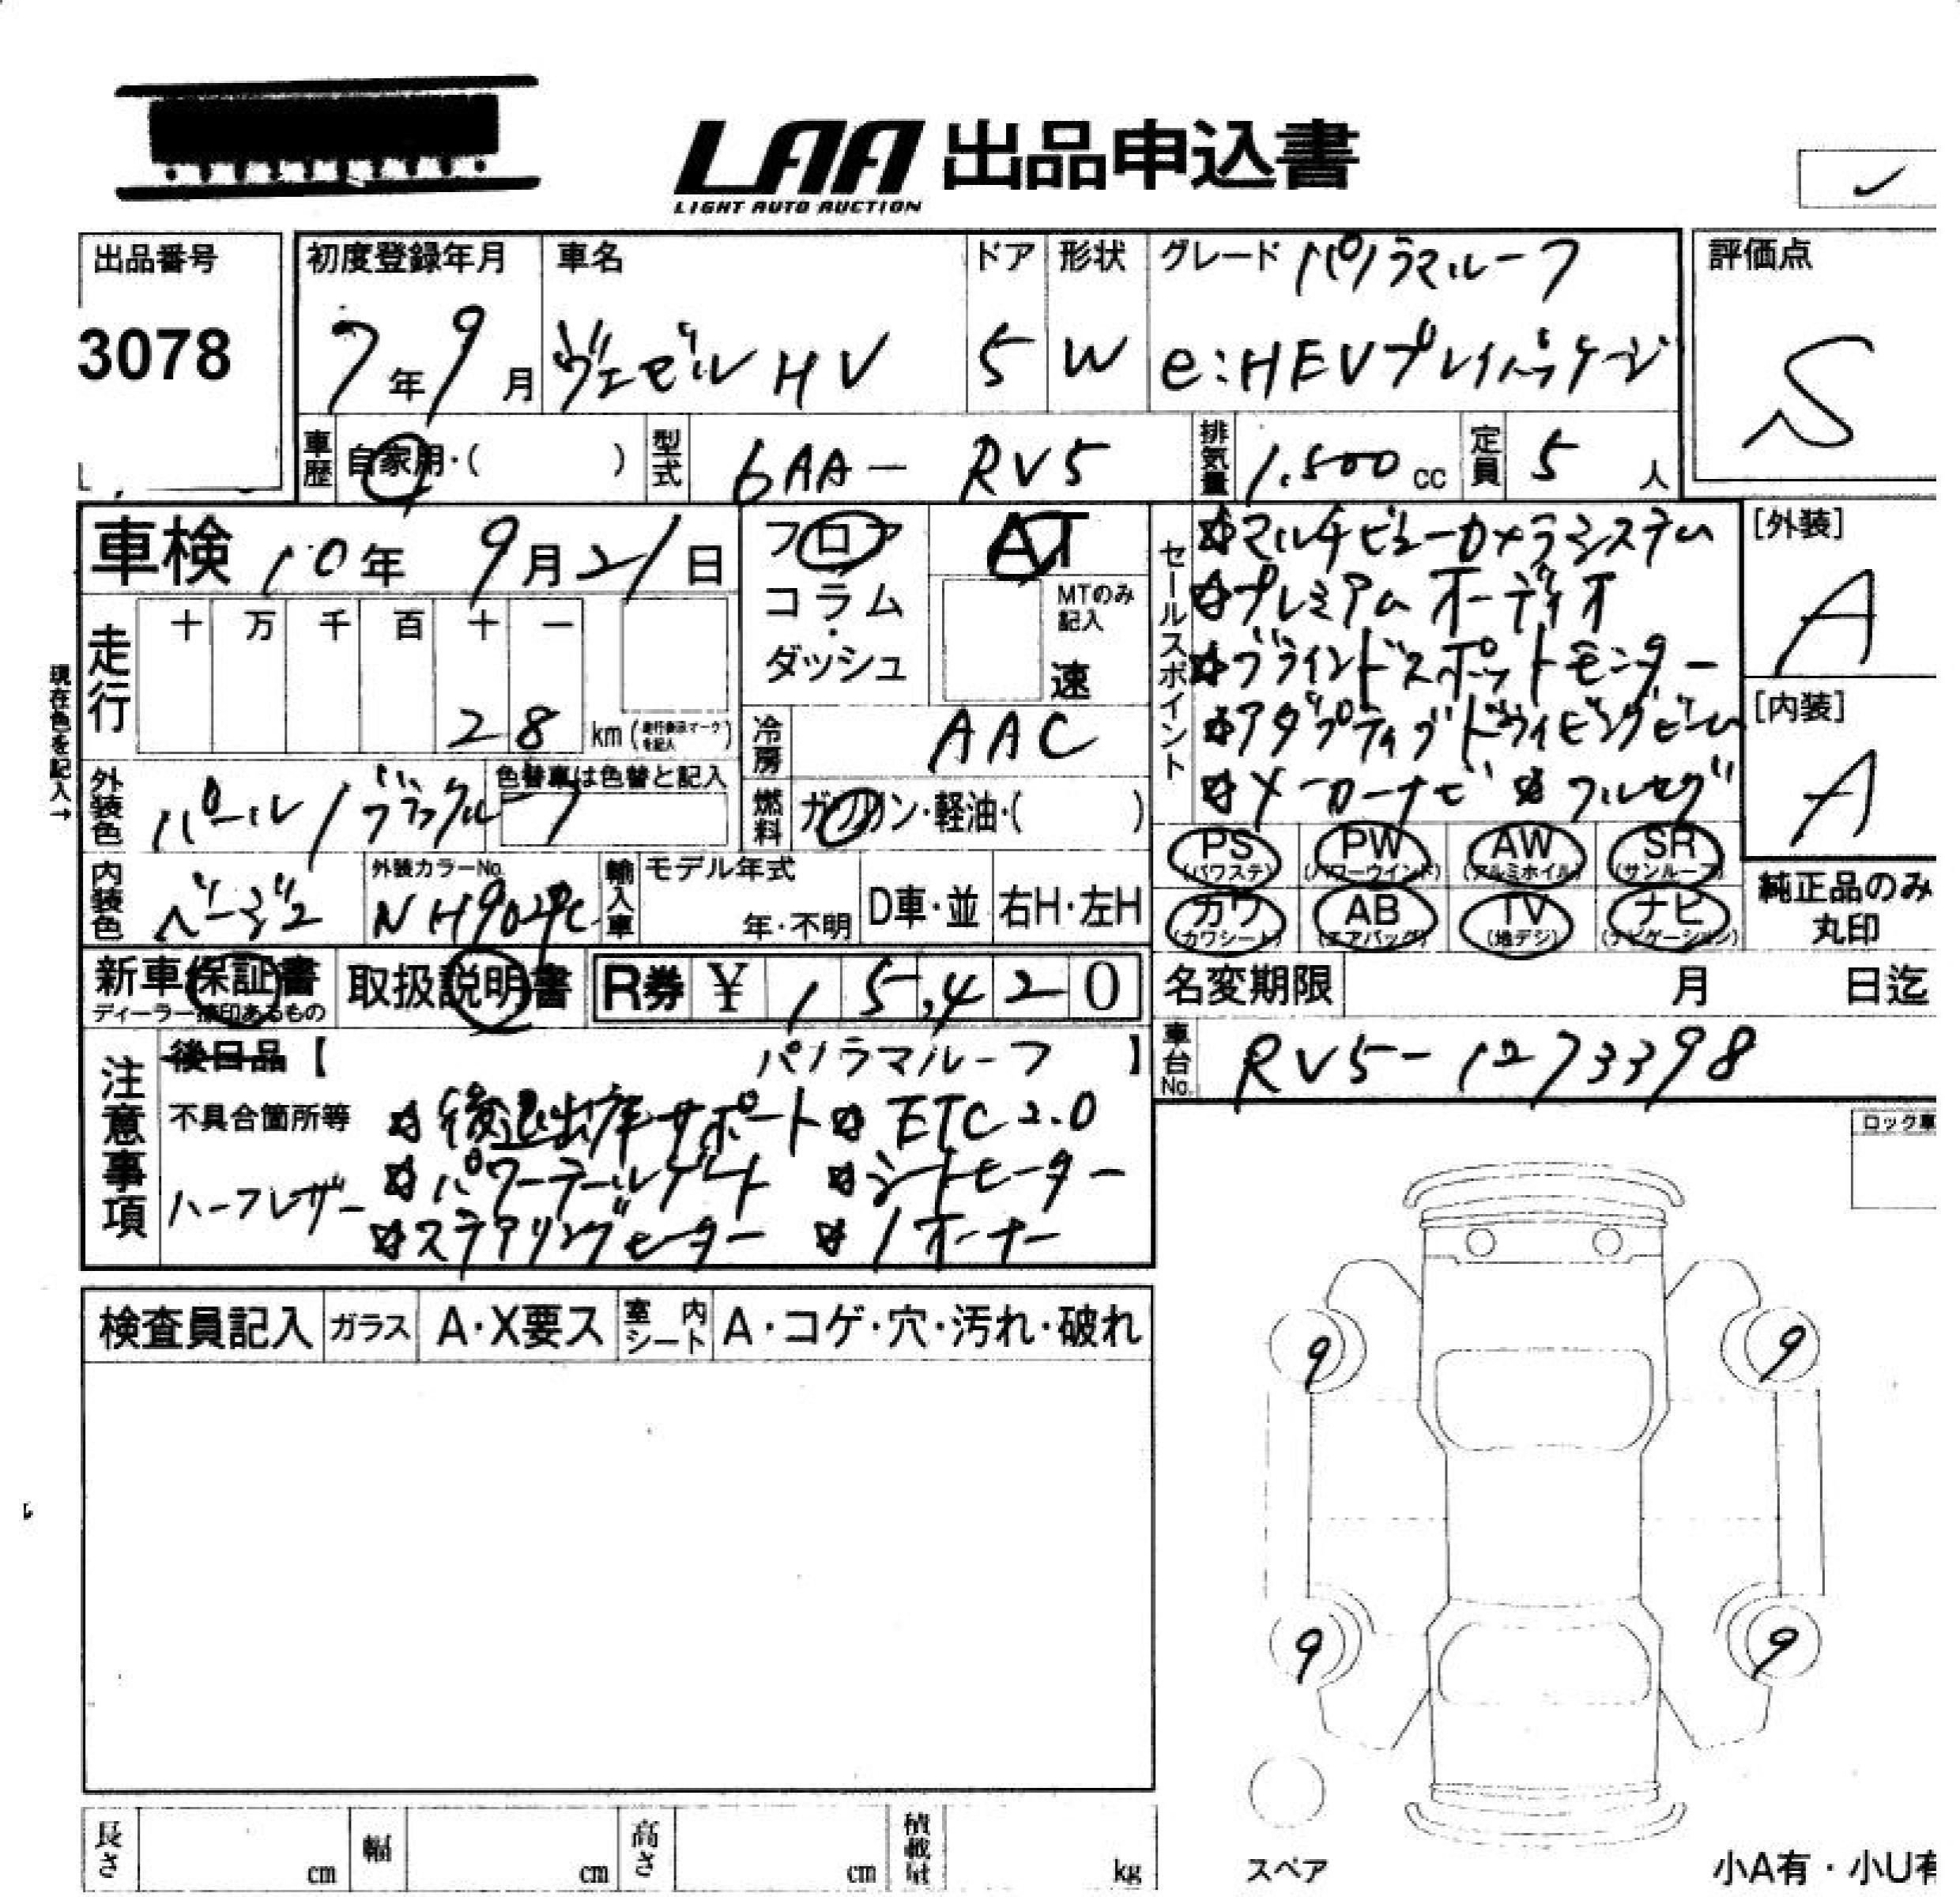 LAA 出品申込書
LIGHT AUTO AUCTION
出品番号
3078
初度登録年月
7年9月
車名
ヴェゼル HV
ドア
5
形状
W
グレード パノラマルーフ
e:HEVプレイパッケージ
評価点
S
車歴
自家用・( )
型式
6AA- RV5
排気量
1.500 cc
定員
5 人
車検 10年 9月21日
フロア
コラム
・
ダッシュ
AT
MTのみ
記入
速
セールスポイント
☆マルチビューカメラシステム
☆プレミアムオーディオ
☆ブラインドスポットモニター
☆アダプティブドライビングビーム
☆メーカーナビ ☆フルセグ
[外装]
A
[内装]
A
現在色を記入→
走行
十 万 千 百 十 一
28
km(走行表示マークを記入)
冷房
AAC
外装色
パール/ブラックルーフ
色替車は色替と記入
燃料
ガソリン・軽油・( )
PS
(パワステ)
PW
(パワーウインド)
AW
(アルミホイル)
SR
(サンルーフ)
カワ
(カワシート)
AB
(エアバッグ)
TV
(地デジ)
ナビ
(ナビゲーション)
純正品のみ
丸印
内装色
ベージュ
外装カラーNo.
輸入車
モデル年式
年・不明
D車・並
右H・左H
新車保証書
ディーラー捺印あるもの
取扱説明書
R券 ¥ 15,420
名変期限 月 日迄
車台No.
RV5-1273398
注意事項
後日品【 パノラマルーフ 】
不具合箇所等 ☆後退出庫サポート ☆ETC2.0
ハーフレザー ☆パワーテールゲート ☆シートヒーター
☆ステアリングヒーター ☆1オーナー
ロック車
検査員記入
ガラス
A・X要ス
室内
シート
A・コゲ・穴・汚れ・破れ
9
9
9
9
スペア
長さ cm
幅 cm
高さ cm
積載量 kg
小A有・小U有